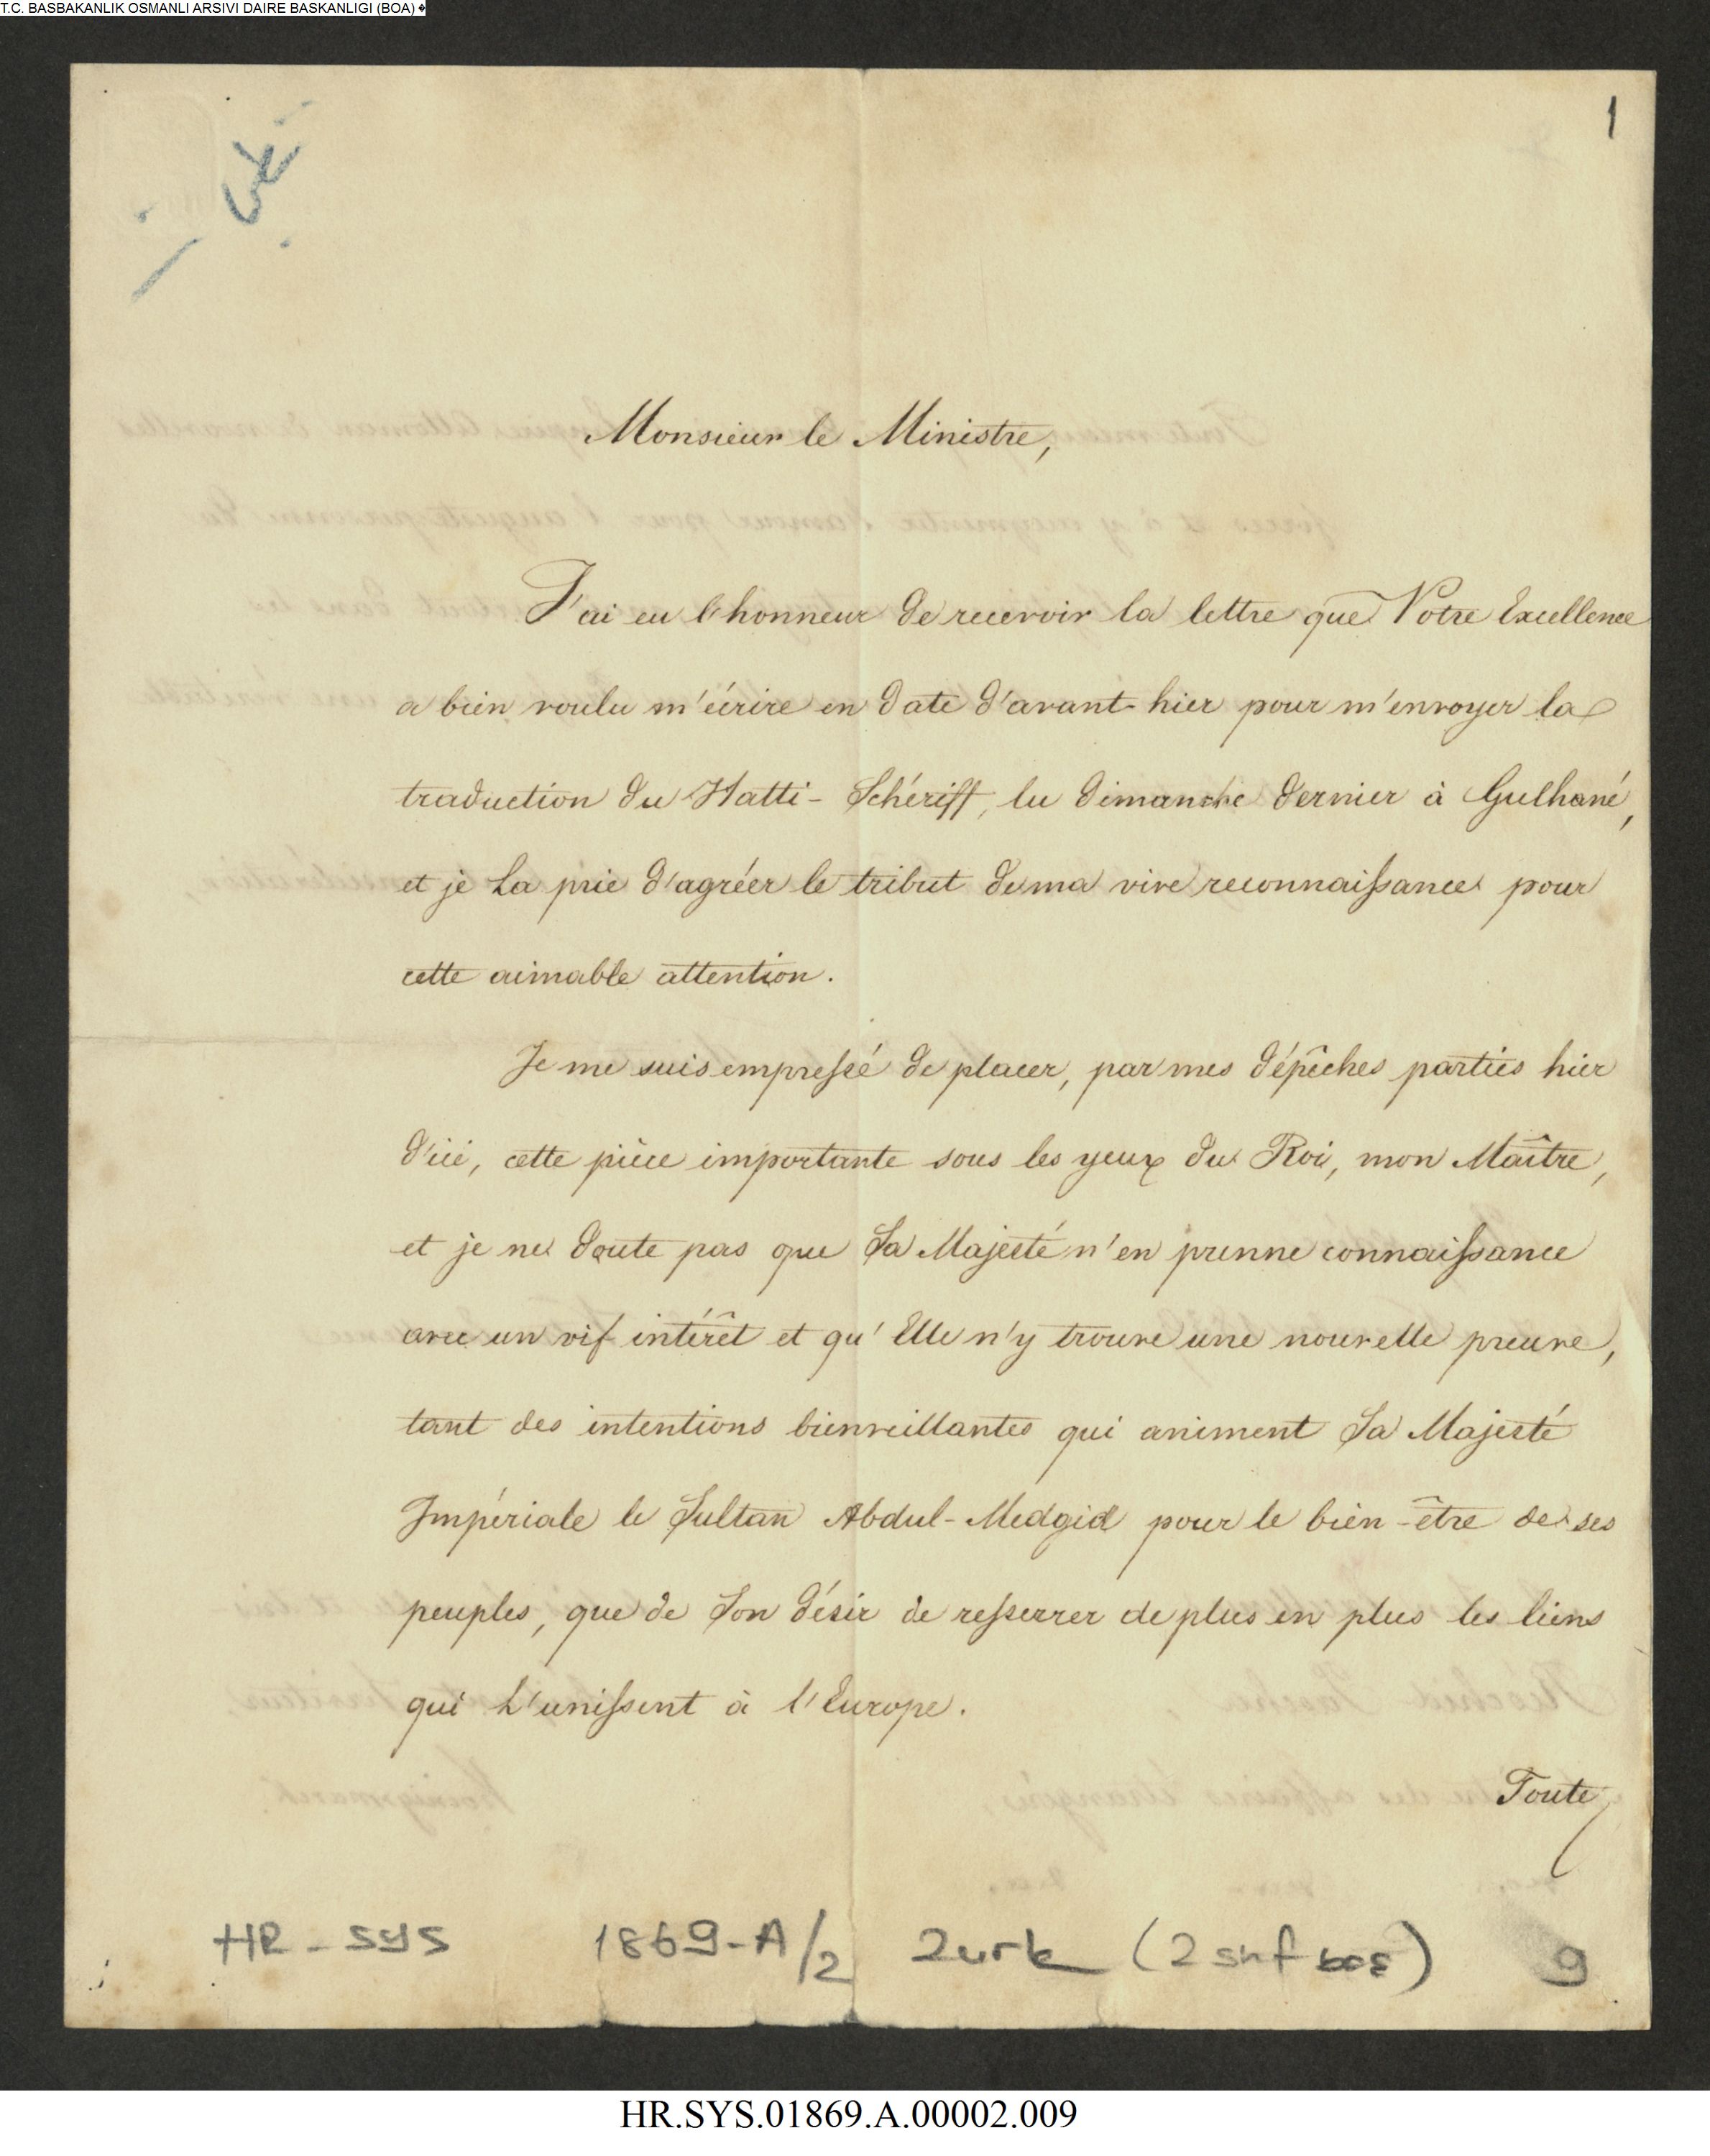 T.C. BASBAKANLIK OSMANLI ARSIVI DAIRE BASKANLIGI (BOA)
1
Monsieur le Ministre,
J'ai eu l'honneur de recevoir la lettre que Votre Excellence
a bien voulu m'écrire en date d'avant-hier pour m'envoyer la
traduction du Hatti-Schériff, lu dimanche dernier à Gulhané,
et je La prie d'agréer le tribut de ma vive reconnaissance pour
cette aimable attention.
Je me suis empressé de placer, par mes dépêches parties hier
d'ici, cette pièce importante sous les yeux du Roi, mon Maître,
et je ne doute pas que Sa Majesté n'en prenne connaissance
avec un vif intérêt et qu'Elle n'y trouve une nouvelle preuve,
tant des intentions bienveillantes qui animent Sa Majesté
Impériale le Sultan Abdul-Medgid pour le bien-être de ses
peuples, que de Son désir de resserrer de plus en plus les liens
qui L'unissent à l'Europe.
Toute
HR-SYS 1869-A/2 2urk (2 shf boş) 9
HR.SYS.01869.A.00002.009